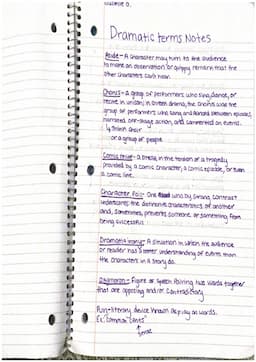 Dramatic terms Notes
Aside - A character may turn to the audience
to make an observation or quippy remark that the
other characters can't hear.
Chorus - a group of performers who sing, dance, or
recite in unison; in Greek drama, the chorus was the
group of performers who sang and danced between episodes,
narrated off-stage action, and commented on events.
or a group of people
Comic relief - a break in the tension of a tragedy
provided by a comic character, a comic episode, or even
a comic line.
Character Foil - One who by strong contrast
underscores the distinctive characteristics of another
and, sometimes, prevents someone or something from
being successful
Dramatic Irony - A situation in which the audience
or reader has a better understanding of events than
the characters in a story do.
Oxymoron - Figure of speech pairing two words together
that are opposing and/or contradictory.
Pun - literary device known as play on words.
Ex. "common cents"
sense